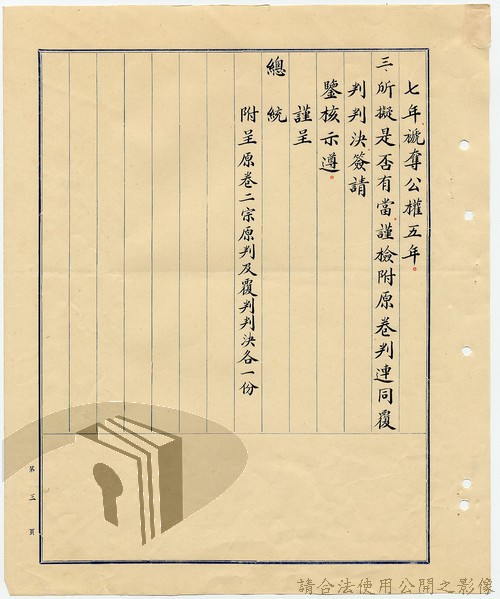 七年褫奪公權五年。
三、所擬是否有當謹檢附原卷判連同覆
判判決簽請
鑒核示遵。
謹呈
總統
附呈原卷二宗原判及覆判判決各一份
第三頁
請合法使用公開之影像